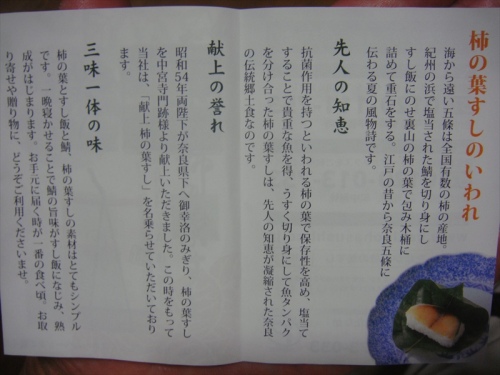 柿の葉すしのいわれ
海から遠い五條は全国有数の柿の産地。
紀州の浜で塩当された鯖を切り身にし
すし飯にのせ裏山の柿の葉で包み木桶に
詰めて重石をする。江戸の昔から奈良五條に
伝わる夏の風物詩です。
先人の知恵
抗菌作用を持つといわれる柿の葉で保存性を高め、塩当て
することで貴重な魚を得、うすく切り身にして魚タンパク
を分け合った柿の葉すしは、先人の知恵が凝縮された奈良
の伝統郷土食なのです。
献上の誉れ
昭和54年両陛下が奈良県下へ御幸洛のみぎり、柿の葉すし
を中宮寺門跡様より献上いただきました。この時をもって
当社は、「献上 柿の葉すし」を名乗らせていただいており
ます。
三味一体の味
柿の葉とすし飯と鯖、柿の葉すしの素材はとてもシンプル
です。一晩寝かせることで鯖の旨味がすし飯になじみ、熟
成がはじまります。お手元に届く時が一番の食べ頃。お取
り寄せや贈り物に、どうぞご利用くださいませ。